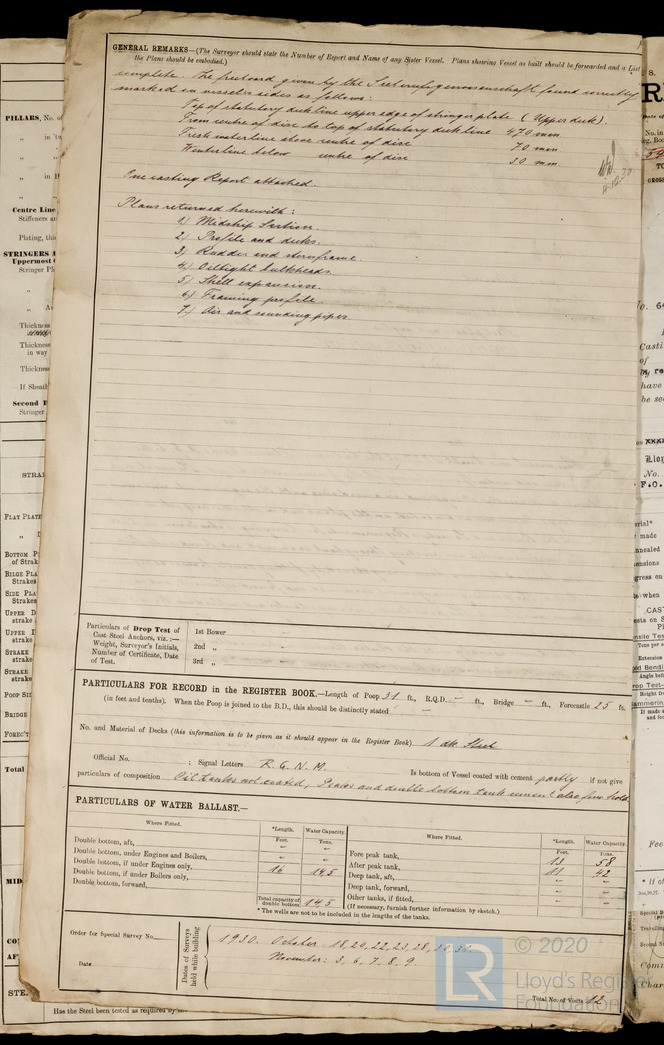 GENERAL REMARKS—(The Surveyor should state the Number of Report and Name of any Sister Vessel. Plans showing Vessel as built should be forwarded and a List
the Plans should be embodied.)
complete. The freeboard given by the Seeberufsgenossenschaft found correctly
marked on vessels sides as follows:
Top of statutory deckline upper edge of stringer plate (Upper deck).
From centre of disc to top of statutory deck line 470 mm
Fresh waterline above centre of disc 70 mm
Winterline below centre of disc 20 mm.
One casting Report attached.
Plans returned herewith:
1) Midship Section.
2) Profile and decks.
3) Rudder and sternframe.
4) Oiltight bulkheads.
5) Shell expansion.
6) Framing profile.
7) Air and sounding pipes.
Particulars of Drop Test of
Cast Steel Anchors, viz.:—
Weight, Surveyor's Initials,
Number of Certificate, Date
of Test.
1st Bower -
2nd „ -
3rd „ -
PARTICULARS FOR RECORD in the REGISTER BOOK.—Length of Poop 31 ft., R.Q.D. - ft., Bridge - ft., Forecastle 25 ft.
(in feet and tenths). When the Poop is joined to the B.D., this should be distinctly stated -
No. and Material of Decks (this information is to be given as it should appear in the Register Book) 1 dk Steel
Official No. ; Signal Letters R.G.N.M. Is bottom of Vessel coated with cement partly if not give
particulars of composition Oil tanks not coated, Peaks and double bottom tank cement also
PARTICULARS OF WATER BALLAST.—
Where Fitted. *Length. Water Capacity.
Feet. Tons.
Double bottom, aft, - -
Double bottom, under Engines and Boilers, - -
Double bottom, if under Engines only, 16 14,5
Double bottom, if under Boilers only, - -
Double bottom, forward,
Total capacity of double bottom 14,5
Where Fitted. *Length. Water Capacity.
Feet. Tons.
Fore peak tank, 13 58
After peak tank, 11 42
Deep tank, aft, - -
Deep tank, forward, - -
Other tanks, if fitted, - -
(If necessary, furnish further information by sketch.)
* The wells are not to be included in the lengths of the tanks.
Order for Special Survey No.
Date
Dates of Surveys held while building
1930. October 18, 20, 22, 23, 28, 30, 31.
November: 3, 6, 7, 8, 9.
Total No. of Visits 12
© 2020
Lloyd's Register
Foundation
LR
PILLARS, No. o
Centre Line
Stiffeners a
Plating, thi
STRINGERS A
Uppermost
Stringer Pl
Thickness
Thickness
in way
Thickness
If Sheat
Second
Stringer
STRA
FLAT PLATE
BOTTOM P
of Strake
BILGE PLA
Strakes
SIDE PLA
Strakes
UPPER D
strake
UPPER D
STRAKE
strake
STRAKE
strake
POOP SI
BRIDGE
FOREC'T
Total
MID
CO
AF
STE.
Has the Steel been tested as required by